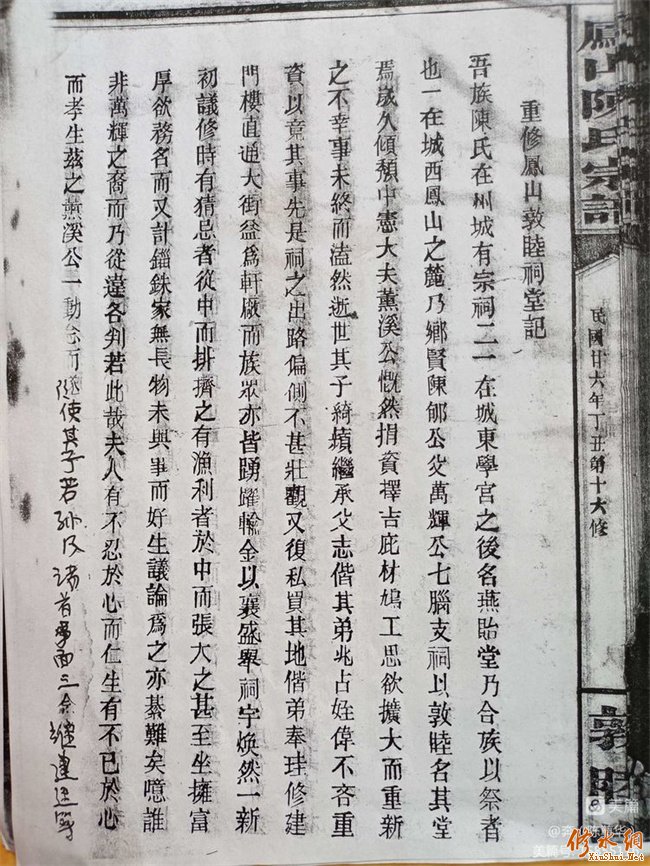 鳳山陳氏宗譜
民國廿六年丁丑第十六修
敦睦
重修鳳山敦睦祠堂記
吾族陳氏在州城有宗祠二一在城東學宮之後名燕貽堂乃合族以祭者
也一在城西鳳山之麓乃鄉賢陳郇公父萬輝公七腦支祠以敦睦名其堂
焉歲久傾頹中憲大夫薰溪公慨然捐資擇吉庇材鳩工思欲擴大而重新
之不幸事未終而溘然逝世其子綺嬪繼承父志偕其弟兆占姪偉不吝重
資以竟其事先是祠之出路偏側不甚壯觀又復私買其地偕弟奉珪修建
門樓直通大街益爲軒厰而族眾亦皆踴躍輸金以襄盛舉祠宇煥然一新
初議修時有猜忌者從中而排擠之有漁利者於中而張大之甚至坐擁富
厚欲務名而又計錙銖家無長物未與事而好生議論爲之亦綦難矣噫誰
非萬輝之裔而乃從違各判若此哉夫人有不忍於心而仁生有不已於心
而孝生茲之薰溪公一動念而使其子若孫及諸首事
美篇
修水網
XiuShui.Net